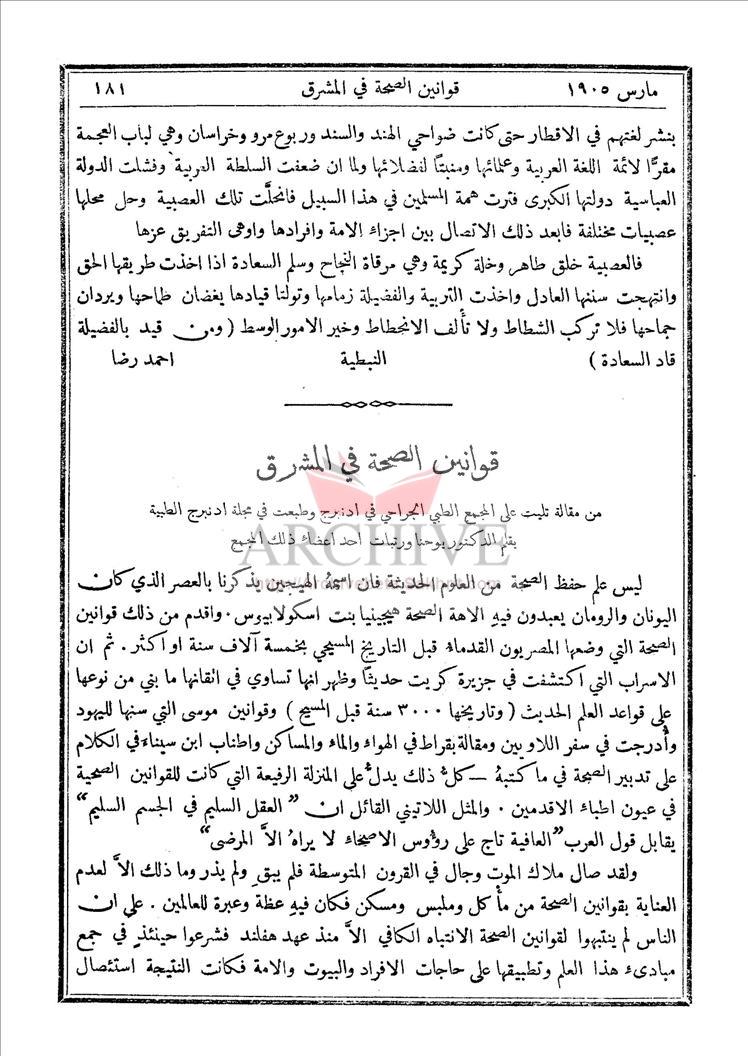 مارس ١٩٠٥ قوانين الصحة في المشرق ١٨١
بنشر لغتهم في الاقطار حتى كانت ضواحي الهند والسند وربوع مرو وخراسان وهي لباب العجمة
مقرًّا لائمة اللغة العربية وعلمائها ومنبتًا لفضلائها ولما ان ضعفت السلطة العربية وفشلت الدولة
العباسية دولتها الكبرى فترت همة المسلمين في هذا السبيل فانحلَّت تلك العصبية وحل محلها
عصبيات مختلفة فابعد ذلك الاتصال بين اجزاء الامة وافرادها واوهى التفريق عزها
فالعصبية خلق طاهر وخلة كريمة وهي مرقاة النجاح وسلم السعادة اذا اخذت طريقها الحق
وانتهجت سننها العادل واخذت التربية والفضيلة زمامها وتولتا قيادها يغضان طماحها ويردان
جماحها فلا تركب الشطاط ولا تألف الانحطاط وخير الامور الوسط ( ومن قيد بالفضيلة
قاد السعادة ) النبطية احمد رضا
قوانين الصحة في المشرق
من مقالة تليت على المجمع الطبي الجراحي في ادنبرج وطبعت في مجلة ادنبرج الطبية
بقلم الدكتور يوحنا ورتبات احد اعضاء ذلك المجمع
ARCHIVE
ليس علم حفظ الصحة من العلوم الحديثة فان اسمهُ الهيجين يذكرنا بالعصر الذي كان
اليونان والرومان يعبدون فيهِ الاهة الصحة هيجينيا بنت اسكولابيوس . واقدم من ذلك قوانين
الصحة التي وضعها المصريون القدماء قبل التاريخ المسيحي بخمسة آلاف سنة او اكثر . ثم ان
الاسراب التي اكتشفت في جزيرة كريت حديثًا وظهر انها تساوي في اتقانها ما بني من نوعها
على قواعد العلم الحديث ( وتاريخها ٣٠٠٠ سنة قبل المسيح ) وقوانين موسى التي سنها لليهود
وأُدرجت في سفر اللاويين ومقالة بقراط في الهواء والماء والمساكن واطناب ابن سيناء في الكلام
على تدبير الصحة في ما كتبهُ — كلُّ ذلك يدلُّ على المنزلة الرفيعة التي كانت للقوانين الصحية
في عيون اطباء الاقدمين . والمثل اللاتيني القائل ان " العقل السليم في الجسم السليم "
يقابل قول العرب "العافية تاج على رؤوس الاصحاء لا يراهُ الاَّ المرضى"
ولقد صال ملاك الموت وجال في القرون المتوسطة فلم يبقِ ولم يذر وما ذلك الاَّ لعدم
العناية بقوانين الصحة من مأكل وملبس ومسكن فكان فيهِ عظة وعبرة للعالمين . على ان
الناس لم ينتبهوا لقوانين الصحة الانتباه الكافي الاَّ منذ عهد هفلند فشرعوا حينئذٍ في جمع
مبادئ هذا العلم وتطبيقها على حاجات الافراد والبيوت والامة فكانت النتيجة استئصال